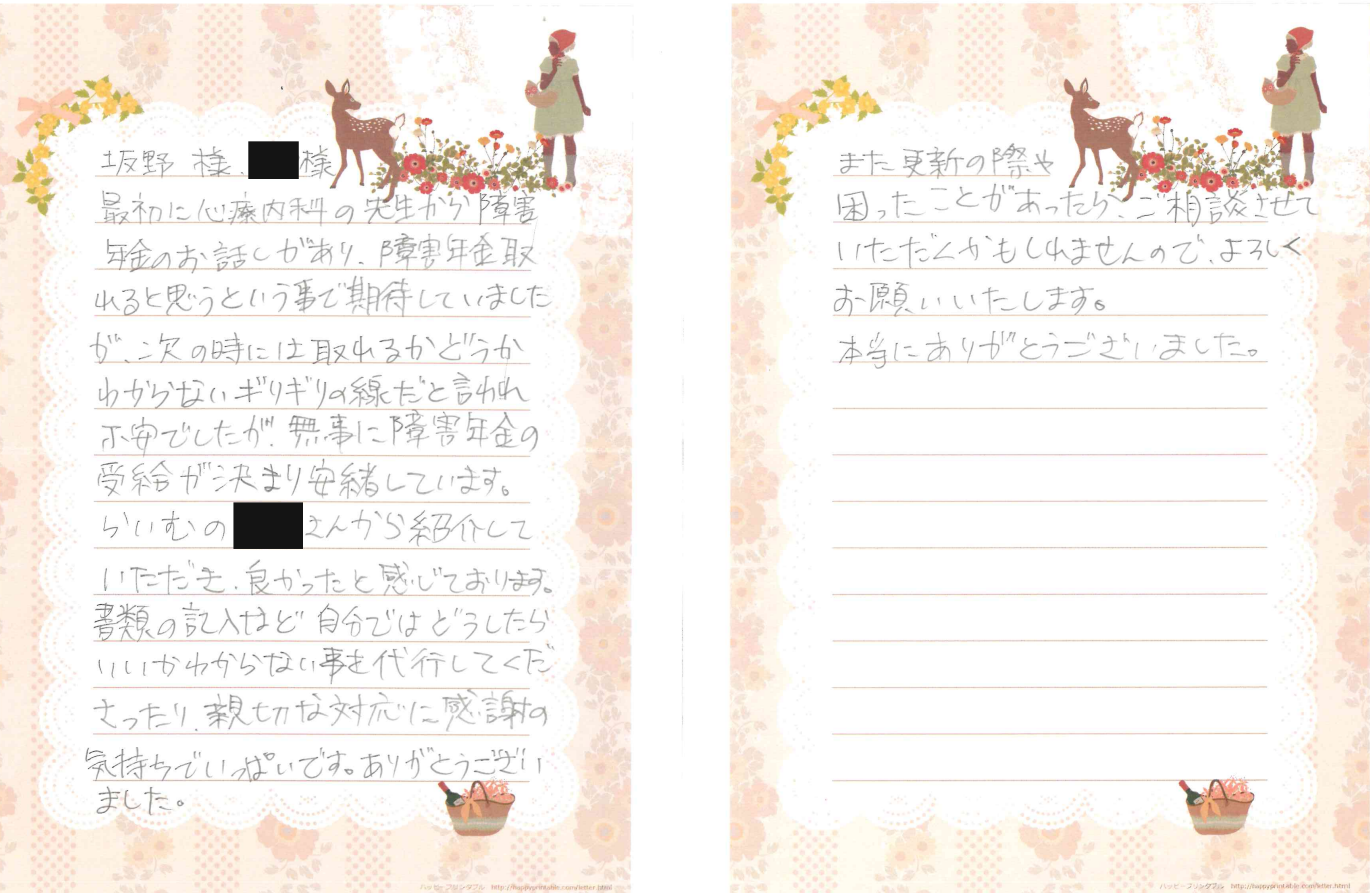 坂野 様、 様
最初に心療内科の先生から障害
年金のお話しがあり、障害年金取
れると思うという事で期待していました
が、次の時には取れるかどうか
わからないギリギリの線だと言われ
不安でしたが、無事に障害年金の
受給が決まり安緒しています。
らいむの さんから紹介して
いただき、良かったと感じております。
書類の記入など自分ではどうしたら
いいかわからない事を代行してくだ
さったり、親切な対応に感謝の
気持ちでいっぱいです。ありがとうござい
ました。
ハッピープリンタブル http://happyprintable.com/letter.html
また更新の際や
困ったことがあったら、ご相談させて
いただくかもしれませんので、よろしく
お願いいたします。
本当にありがとうございました。
ハッピープリンタブル http://happyprintable.com/letter.html